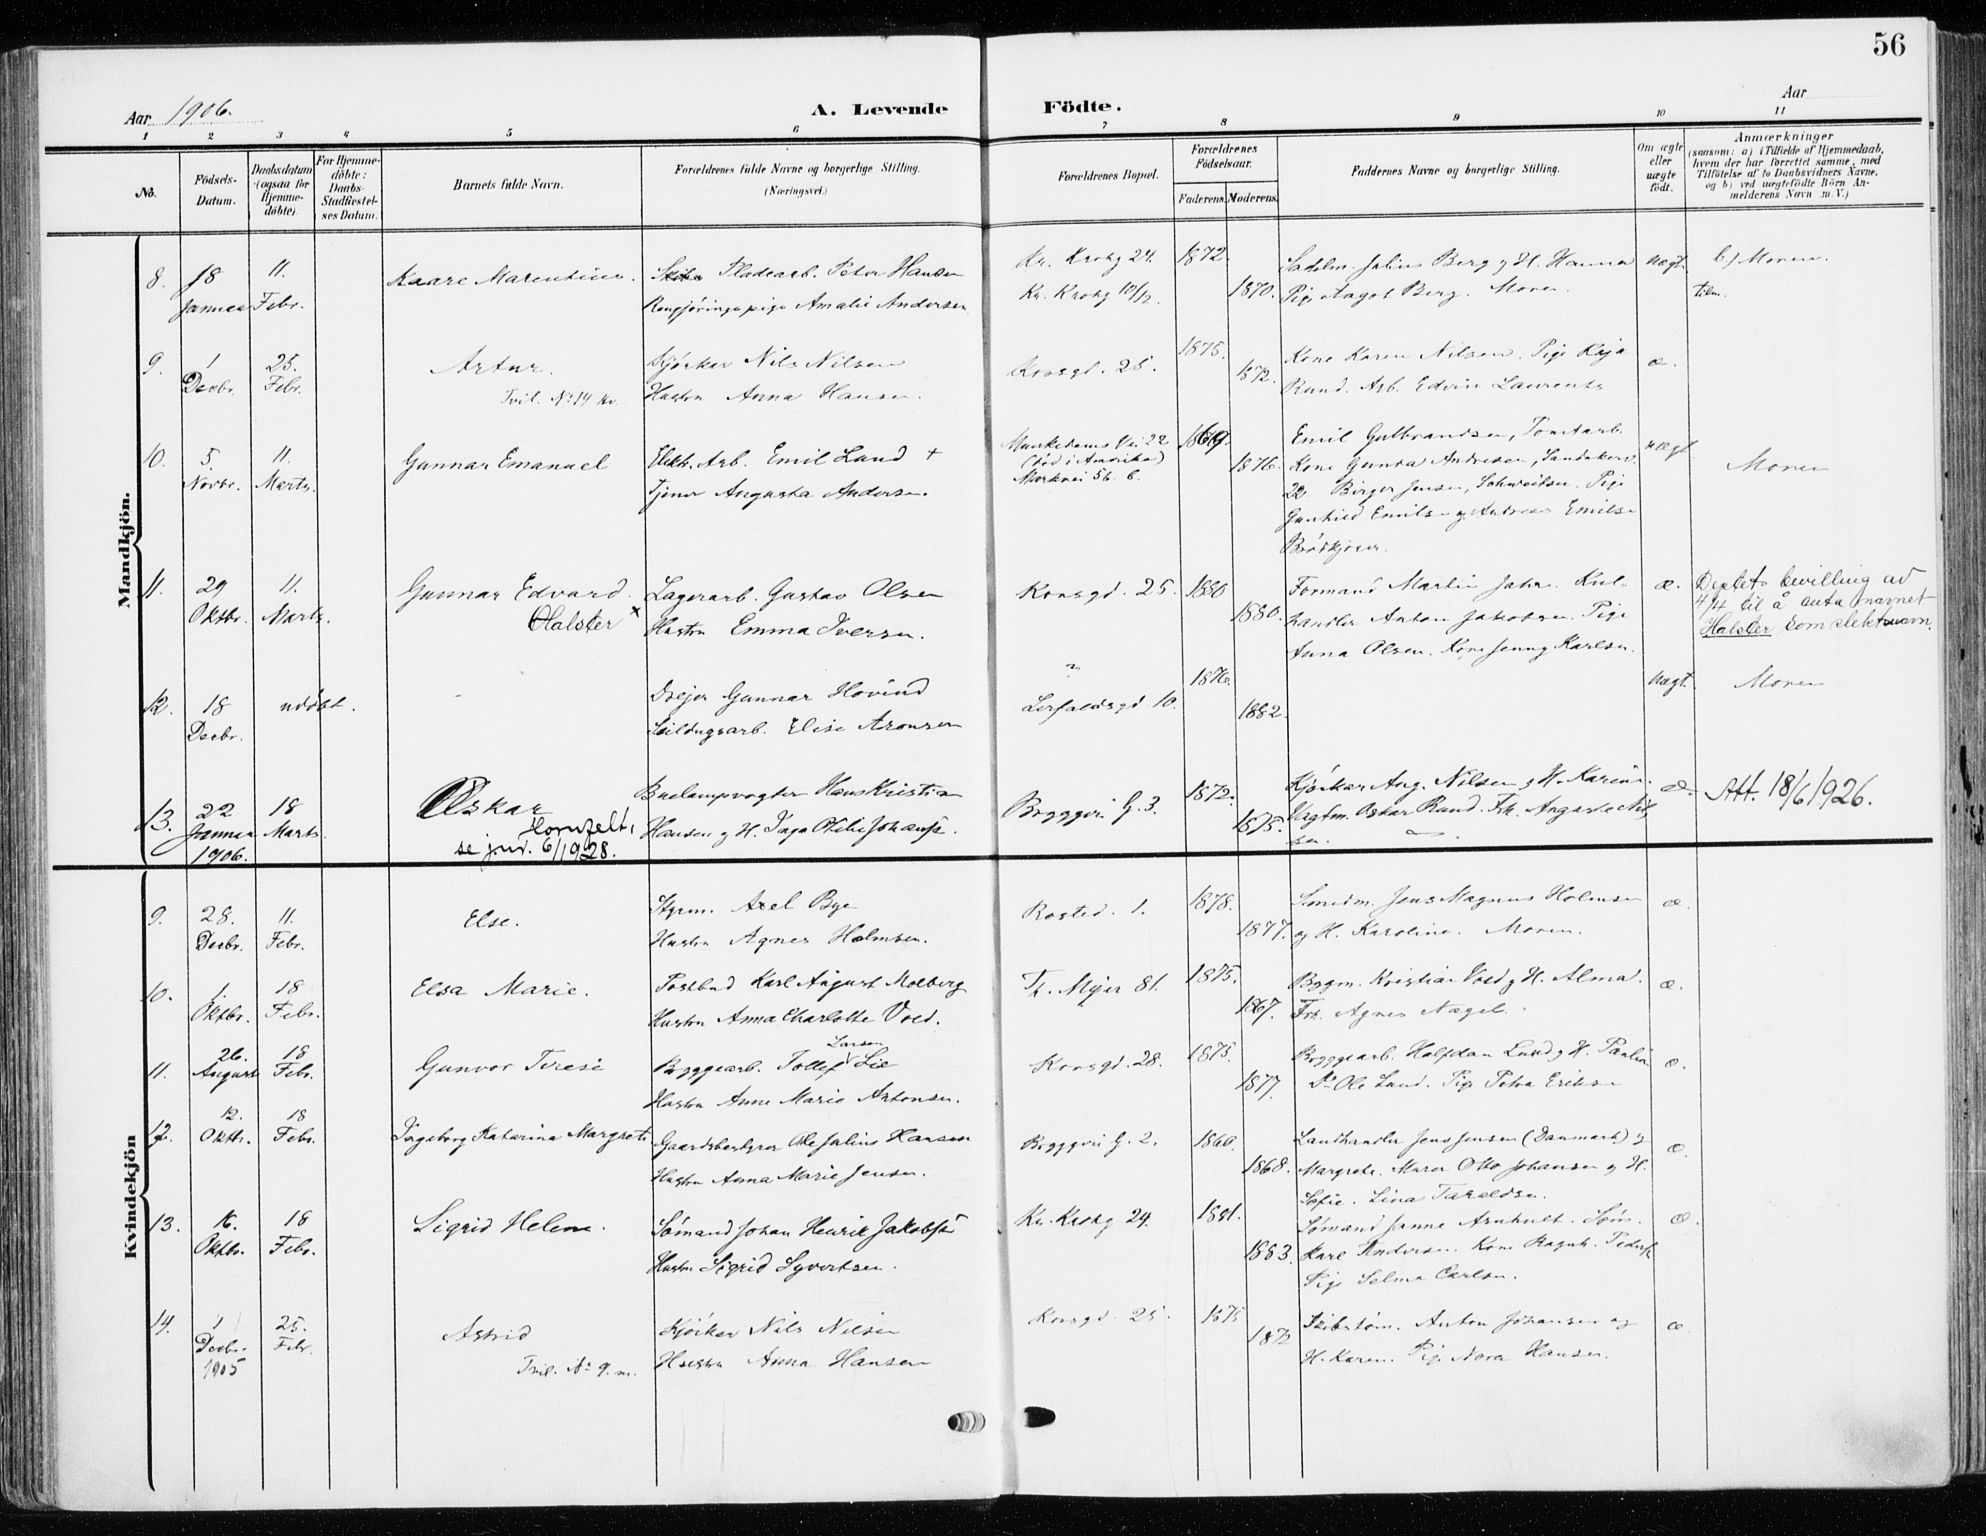 56
Aar 1906.
A. Levende Födte.
Aar
1 2 3 4 5 6 7 8 9 10 11
No.
Födsels-Datum.
Daabsdatum (ogsaa for Hjemme-döbte).
For Hjemme-döbte: Daabs-Stadfæstel-ses Datum.
Barnets fulde Navn.
Forældrenes fulde Navne og borgerlige Stilling.
(Næringsvei.)
Forældrenes Bopæl.
Forældrenes Födselsaar.
Faderens. Moderens.
Faddernes Navne og borgerlige Stilling.
Om ægte eller uægte födt.
Anmærkninger
(saasom: a) i Tilfælde af Hjemmedaab,
hvem der har forrettet samme, med
Tilföielse af to Daabsvidners Navne,
og b) ved uægtefödte Börn An-
melderens Navn m. V.)
Mandkjön.
8. 18 11. Kaare Marentius. Pladearb. Peter Hansen Kr. Krohg 24. 1872. Julius Berg og H. Hanna uægt. b) Moren.
Januar Febr. Rengjøringspige Amalie Andersen Kr. Krohg 10/12. 1870. Pige Aagot Berg. Moren.
9. 1 25. Artur. Kjörker Nils Nilsen Korsgd. 25. 1875. Kone Karen Nilsen. Pige Kaja æ.
Decbr. Febr. Tvil. No 14 kv. Hustru Anna Hansen. 1872. Rund. Arb. Edvin Laurents
10. 5. 11. Gunnar Emanuel Elektr. Arb. Emil Lund + Munkedams Vei 22 1869. Emil Gulbrandsen, Tomtarb. uægt. Moren
Novbr. Marts. Tjener Augusta Andersen. (död i Amerika) 1876. Kone Gunda Andresen,
22 Birger Jensen, Pige
Gunhild Emilsen og Andreas Emilsen
Brödkjörer.
11. 29 11. Gunnar Edvard. Lagerarb. Gustav Olsen Korsgd. 25. 1880 Formand Martin Jahr. Kul- æ. Deptets bevilling av
Oktbr. Marts. Halster x Hustru Emma Iversen. 1880. handler Anton Jakobsen. Pige 4/4 til å anta navnet
Anna Olsen. Kone Jenny Karlsen. Halster som slektsnavn.
12. 18 udöbt. Drejer Gunnar Hovind ? 1876. uægt. Moren
Decbr. Seildugsarb. Elise Aronsen Lerfaldsgd. 10. 1882.
13. 22 18 Oskar Buelampvogter Hans Kristian Bryggeri G. 3. 1872. Kjörker Aug. Nilsen og H. Karine. æ. Att. 18/6 1926.
Januar Marts Hornfelt, Hansen og H. Inga Otilie Johans. 1875. Vagtm. Oskar Rund. Frk. Augusta Nil-
1906. se jnr. 6/1928. sen.
Kvindekjön
9. 28. 11. Else. Styrm. Axel Bye Rosted. 1. 1878. Jens Magnus Holmsen æ.
Decbr. Febr. Hustru Agnes Holmsen. 1877. og H. Karoline. Moren.
10. 1. 18 Elsa Marie. Postbud Karl August Molberg Th. Mejer 81. 1875. Bygm. Kristian Vold og H. Alma. æ.
Oktbr. Febr. Hustru Anna Charlotte Vold. 1867. Frk. Agnes Nagel.
11. 26. 18 Gunvor Terese Bryggearb. Tollef Larsen Lie Korsgd. 28. 1875. Bryggearb. Halfdan Lund og H. Pauline æ.
August Febr. Hustru Anne Marie Antonsen. 1877. Do Ole Lund. Pige Petra Eriksen
12. 12. 18 Ingeborg Katarina Margrete Gaardsbestyrer Ole Julius Hansen Bryggeri G. 2. 1860. Landhandler Jens Jensen (Danmark) og æ.
Oktbr. Febr. Hustru Anna Marie Jensen. 1868. Margrete. Murer Otto Johansen og H.
Sofie. Lina Taraldsen.
13. 16. 18 Sigrid Helene. Sömand Johan Henrik Jakobsen Kr. Krohg 24. 1881. Sömand Janne Arnhult. Söm. æ.
Oktbr. Febr. Hustru Sigrid Syvertsen. 1883. Karl Andersen. Kone Ragnh. Peders.
Pige Selma Carlsen.
14. 1 25. Astrid Kjörker Nils Nilsen Korsgd. 25. 1875 Anton Johansen og æ.
Decbr. Febr. Tvil. No 9. m. Hustru Anna Hansen 1872 H. Karen. Pige Nora Hansen.
1905